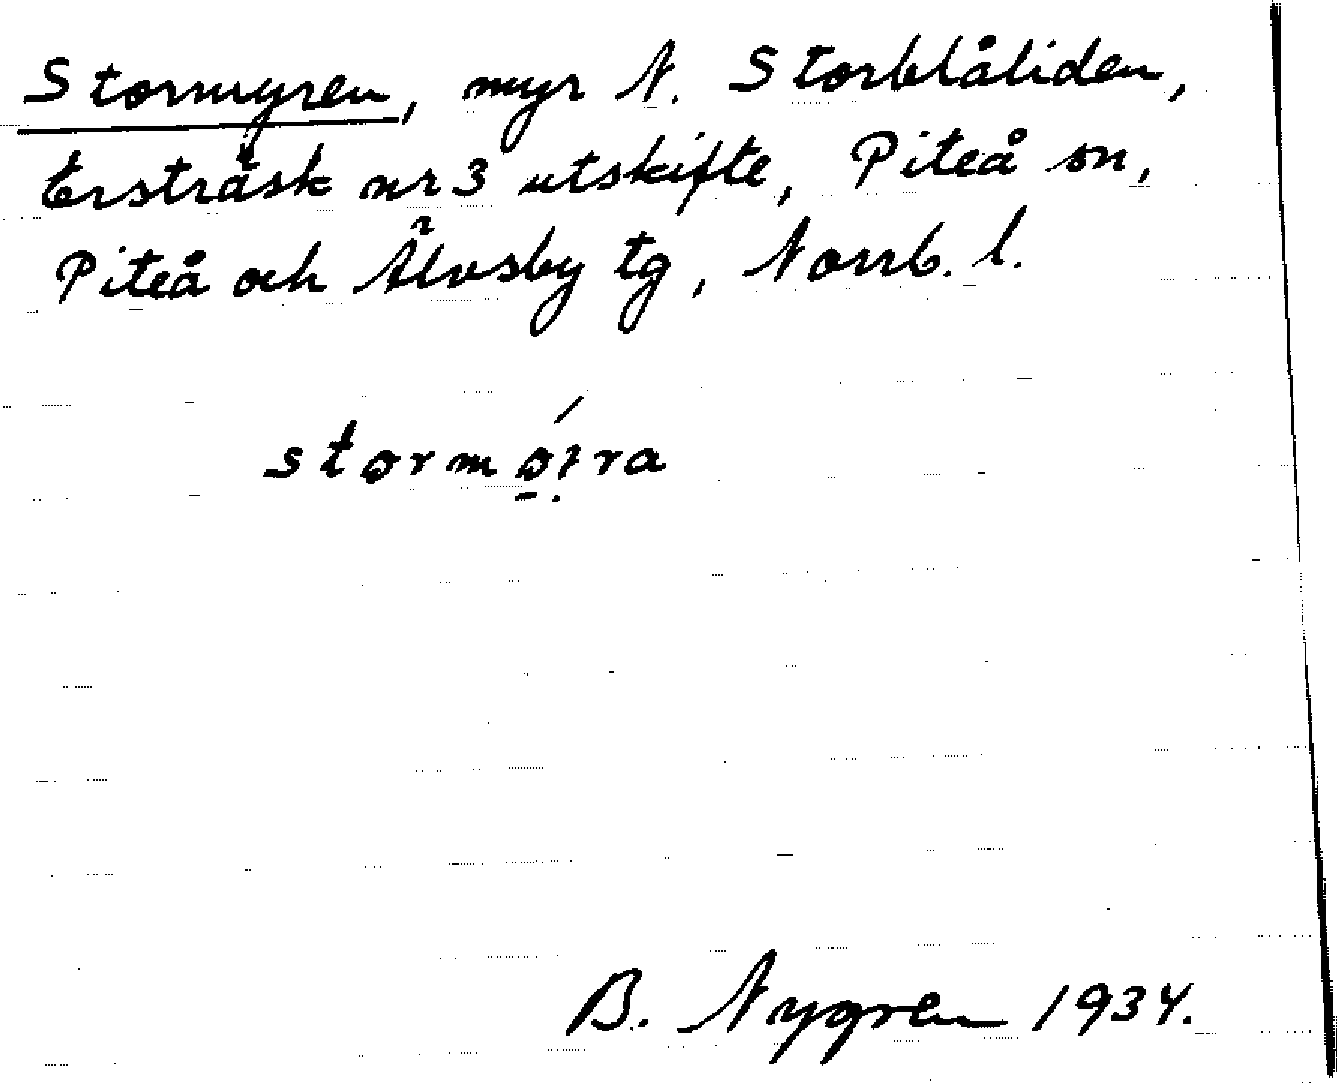 Stormyren, myr N. Storblåliden,
Ersträsk nr 3 utskifte, Piteå sn,
Piteå och Älvsby tg, Norrb. l.
stormǿ̱ı̣ra
B. Nygren 1934.